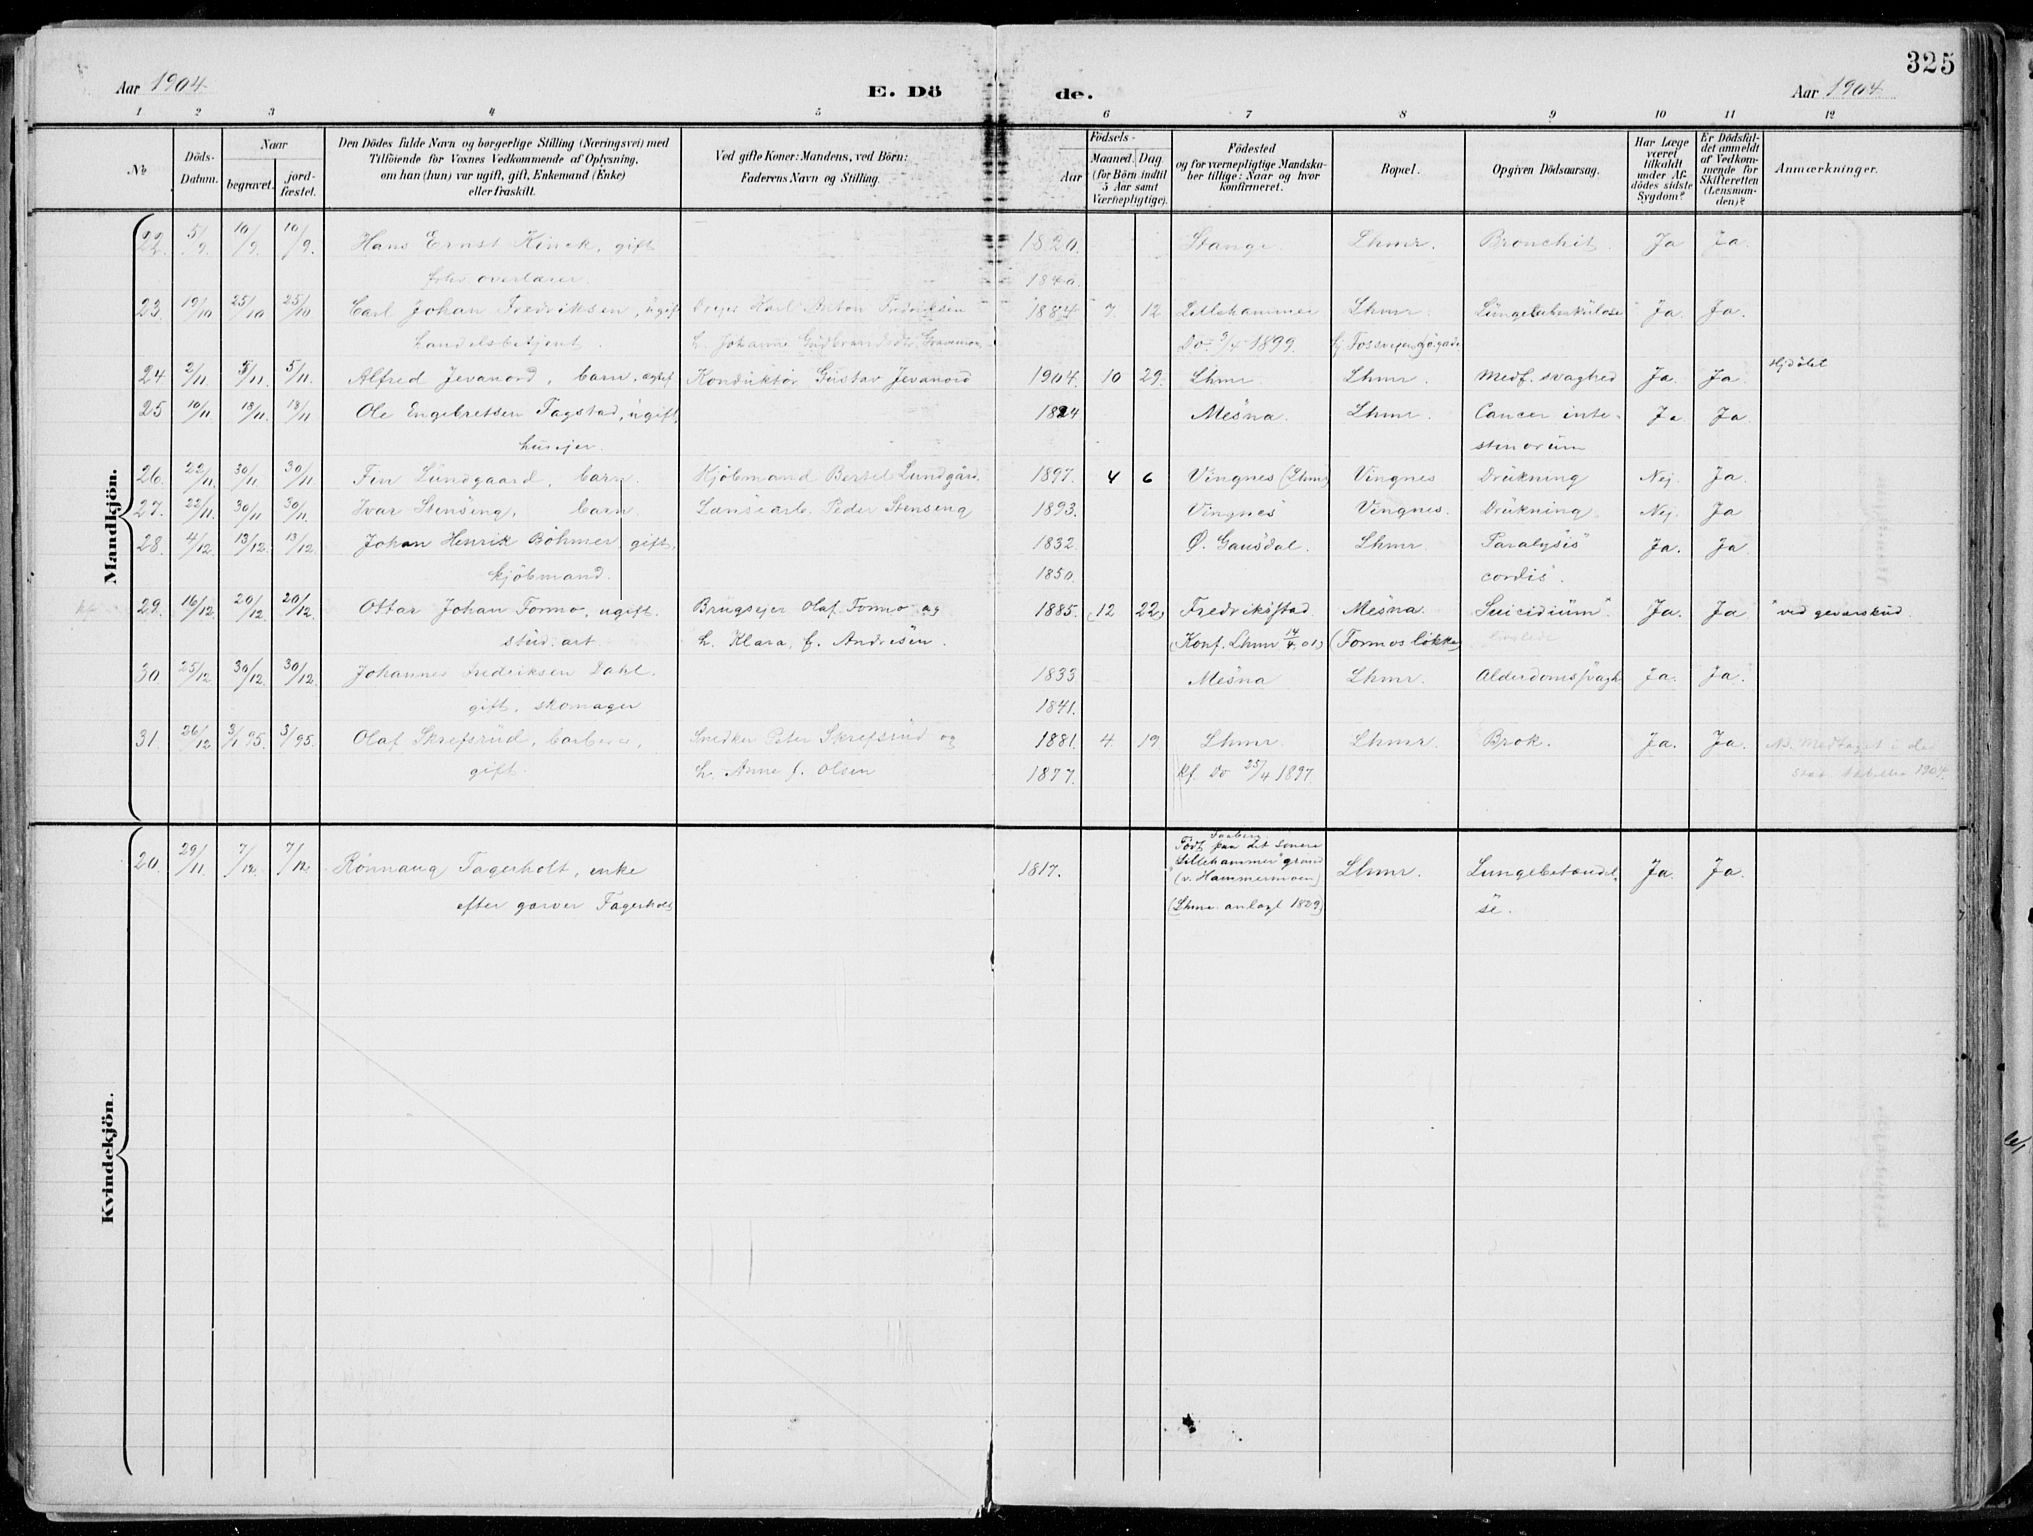 325
Aar 1904. E. Dö de. Aar 1904
1 2 3 4 5 6 7 8 9 10 11 12
No
Döds-Datum.
Naar
begravet.
jord-fæstet.
Den Dödes fulde Navn og borgerlige Stilling (Næringsvei) med
Tilföiende for Voxnes Vedkommende af Oplysning,
om han (hun) var ugift, gift, Enkemand (Enke)
eller fraskilt.
Ved gifte Koner: Mandens, ved Börn:
Faderens Navn og Stilling.
Födsels-
Aar
Maaned. Dag
(for Börn indtil
5 Aar samt
Værnepligtige).
Födested
og for værnepligtige Mandska-
ber tillige: Naar og hvor
konfirmeret.
Bopæl.
Opgiven Dödsaarsag.
Har Læge
været
tilkaldt
under Af-
dödes sidste
Sygdom?
Er Dödsfal-
det anmeldt
af Vedkom-
mende for
Skifteretten
(Lensman-
den)?
Anmærkninger.
Mandkjön.
22. 5/9. 10/9. 10/9. Hans Ernst Kinck, gift 1820. Stange. Lhmr. Bronchit. Ja Ja.
fhv. overlærer. 1840.
23. 19/10 25/10 25/10 Carl Johan Fredriksen, ugift Karl Anton Fredriksen 1884 7. 12 Lillehammer Lhmr. Lungetuberkulose Ja. Ja.
handelsbetjent. h. Johanne Gudbrandsdtr. Do. 9/4 1899.
24 2/11 5/11. 5/11. Alfred Jevanord, barn, ægtef. Konduktör Gustav Jevanord 1904. 10 29. Lhmr. Lhmr. Medf. svaghed Ja. Ja Hjdöbt
25 10/11 18/11. 18/11 Ole Engebretsen Fagstad, ugift, 1824 Mesna. Lhmr. Cancer inte-
husejer. stinorum Ja Ja
26. 22/11. 30/11 30/11 Fin Lundgaard, barn. Kjöbmand Bertel Lundgård. 1897. 4 6 Vingnes (Lhmr) Vingnes Drukning Nej. Ja.
27. 22/11. 30/11 30/11 Ivar Stenseng, barn. Peder Stenseng 1893. Vingnes Vingnes. Drukning Nej. Ja
28. 4/12. 13/12. 13/12 Johan Henrik Böhmer, gift, 1832. Ö. Gausdal. Lhmr. Paralysis Ja. Ja
kjöbmand. 1850. cordis.
29. 16/12 20/12 20/12. Ottar Johan Formo, ugift. Brugsejer Olaf Formo og 1885. (12 22) Fredriksstad Mesna. "Suicidium" Ja. Ja "ved geværskud.
stud. art. h. Klara, f. Andresen. (Konf. Lhmr 14/4 01) (Formos lökke)
30 25/12 30/12. 30/12. Johannes Fredriksen Dahl. 1833 Mesna Lhmr. Alderdomssvagh. Ja. Ja.
gift, skomager 1841.
31. 26/12 3/1 95. 3/1 95. Olaf Skrefsrud, barberer, Snedker Peter Skrefsrud og 1881. 4. 19 Lhmr. Lhmr. Brok. Ja. Ja. NB. Medtaget i de
gift. h. Anne f. Olsen 1877. kf. Do 25/4 1897 1904.
Kvindekjön.
20. 29/11. 7/12. 7/12. Rönnaug Fagerholt, enke 1817. Lhmr. Lungebetændel- Ja. Ja.
efter garver Fagerholt se.
Faaberg.
Födt paa det senere
"Lillehammer" grund
(v. Hammermoen)
(Lhmr. anlagt 1829)